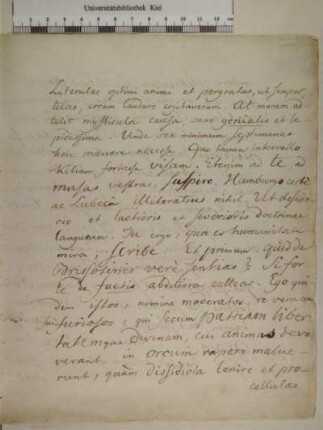 Universitätsbibliothek Kiel
Literulas optimi animi et pergratas, ut semper
tuas, coram laudare constitueram. At moram ad
tulit mysticula causa sane genialis et le
pidissima. Unde sex minimum septimanas
hic manere necesse. Quo tamen intervallo
Kilium fortasse visam. Etenim a te a
musas vestras, suspiro, Hamburgo certe
ac Lubeca illiteratius nihil. Ut deside
rio et lactioris et severioris doctrinae
langueam. Tu ergo, quae es humanitate
mira, scribe. Et primum quid de
Brissoteris vere sentias? Si for
te de factis abditiora calleas. Ego qui
dem istos, nomine moderatos, re vera
furiosos, qui secum patriam liber
tatemque divinam, cui animas devo
verant, in orcum rapere malue
runt, quam dissidia lenire et pro
cellulas